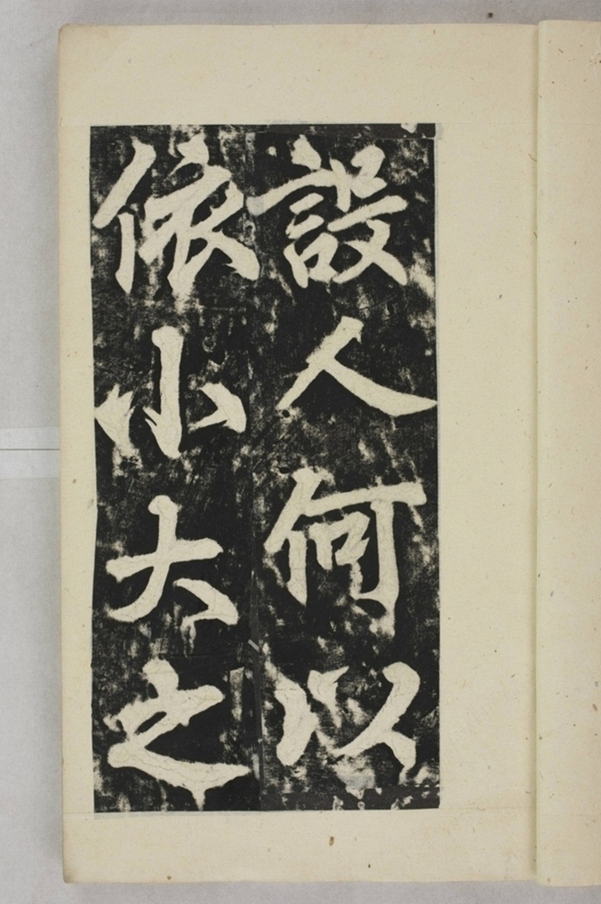 設人何以
依小大之